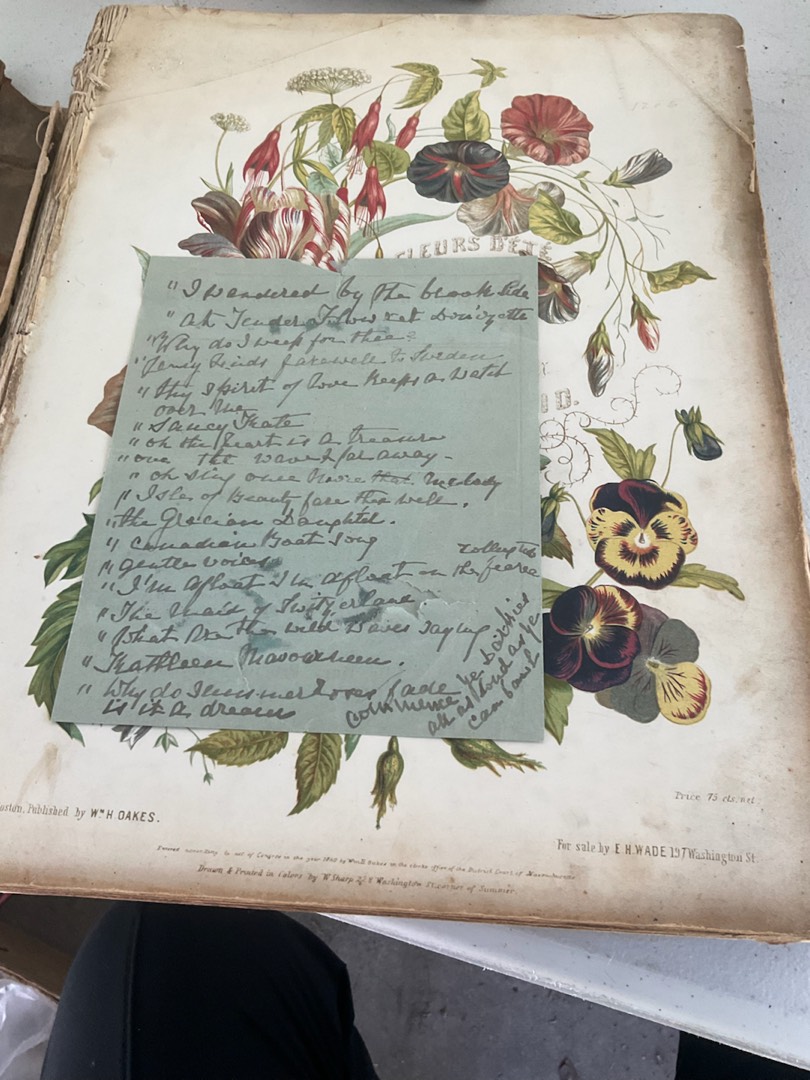 FLEURS D'ÉTÉ
" I wandered by the brook side
" Ah Tender Flowret Donizette
" Why do I weep for thee?
" Jenny Linds farewell to Sweden
" thy spirit of love keeps a watch
over me
" Saucy Kate
" oh the heart is a treasure
" our the wave & far away -
" oh sing once more that melody
" Isles of Beauty fare the well.
" the Grecian Daughter.
" Canadian Boat Song
" gentle voices
" I'm afloat I'm afloat on the fierce
rolling tide
" The Maid of Switzerland
" What are the wild waves saying
" Kathleen Mavourneen.
" Why do Summer Roses fade
is it a dream
commence ye
all as loud as ye
can bawl
D.
Price 75 cts. net
oston, Published by Wm H. OAKES.
For sale by E. H. WADE 197 Washington St.
Entered according to act of Congress in the year by Wm H. Oakes in the clerks office of the District Court of Massachusetts
Drawn & Printed in Colors by W. Sharp Washington St. corner of Summer.